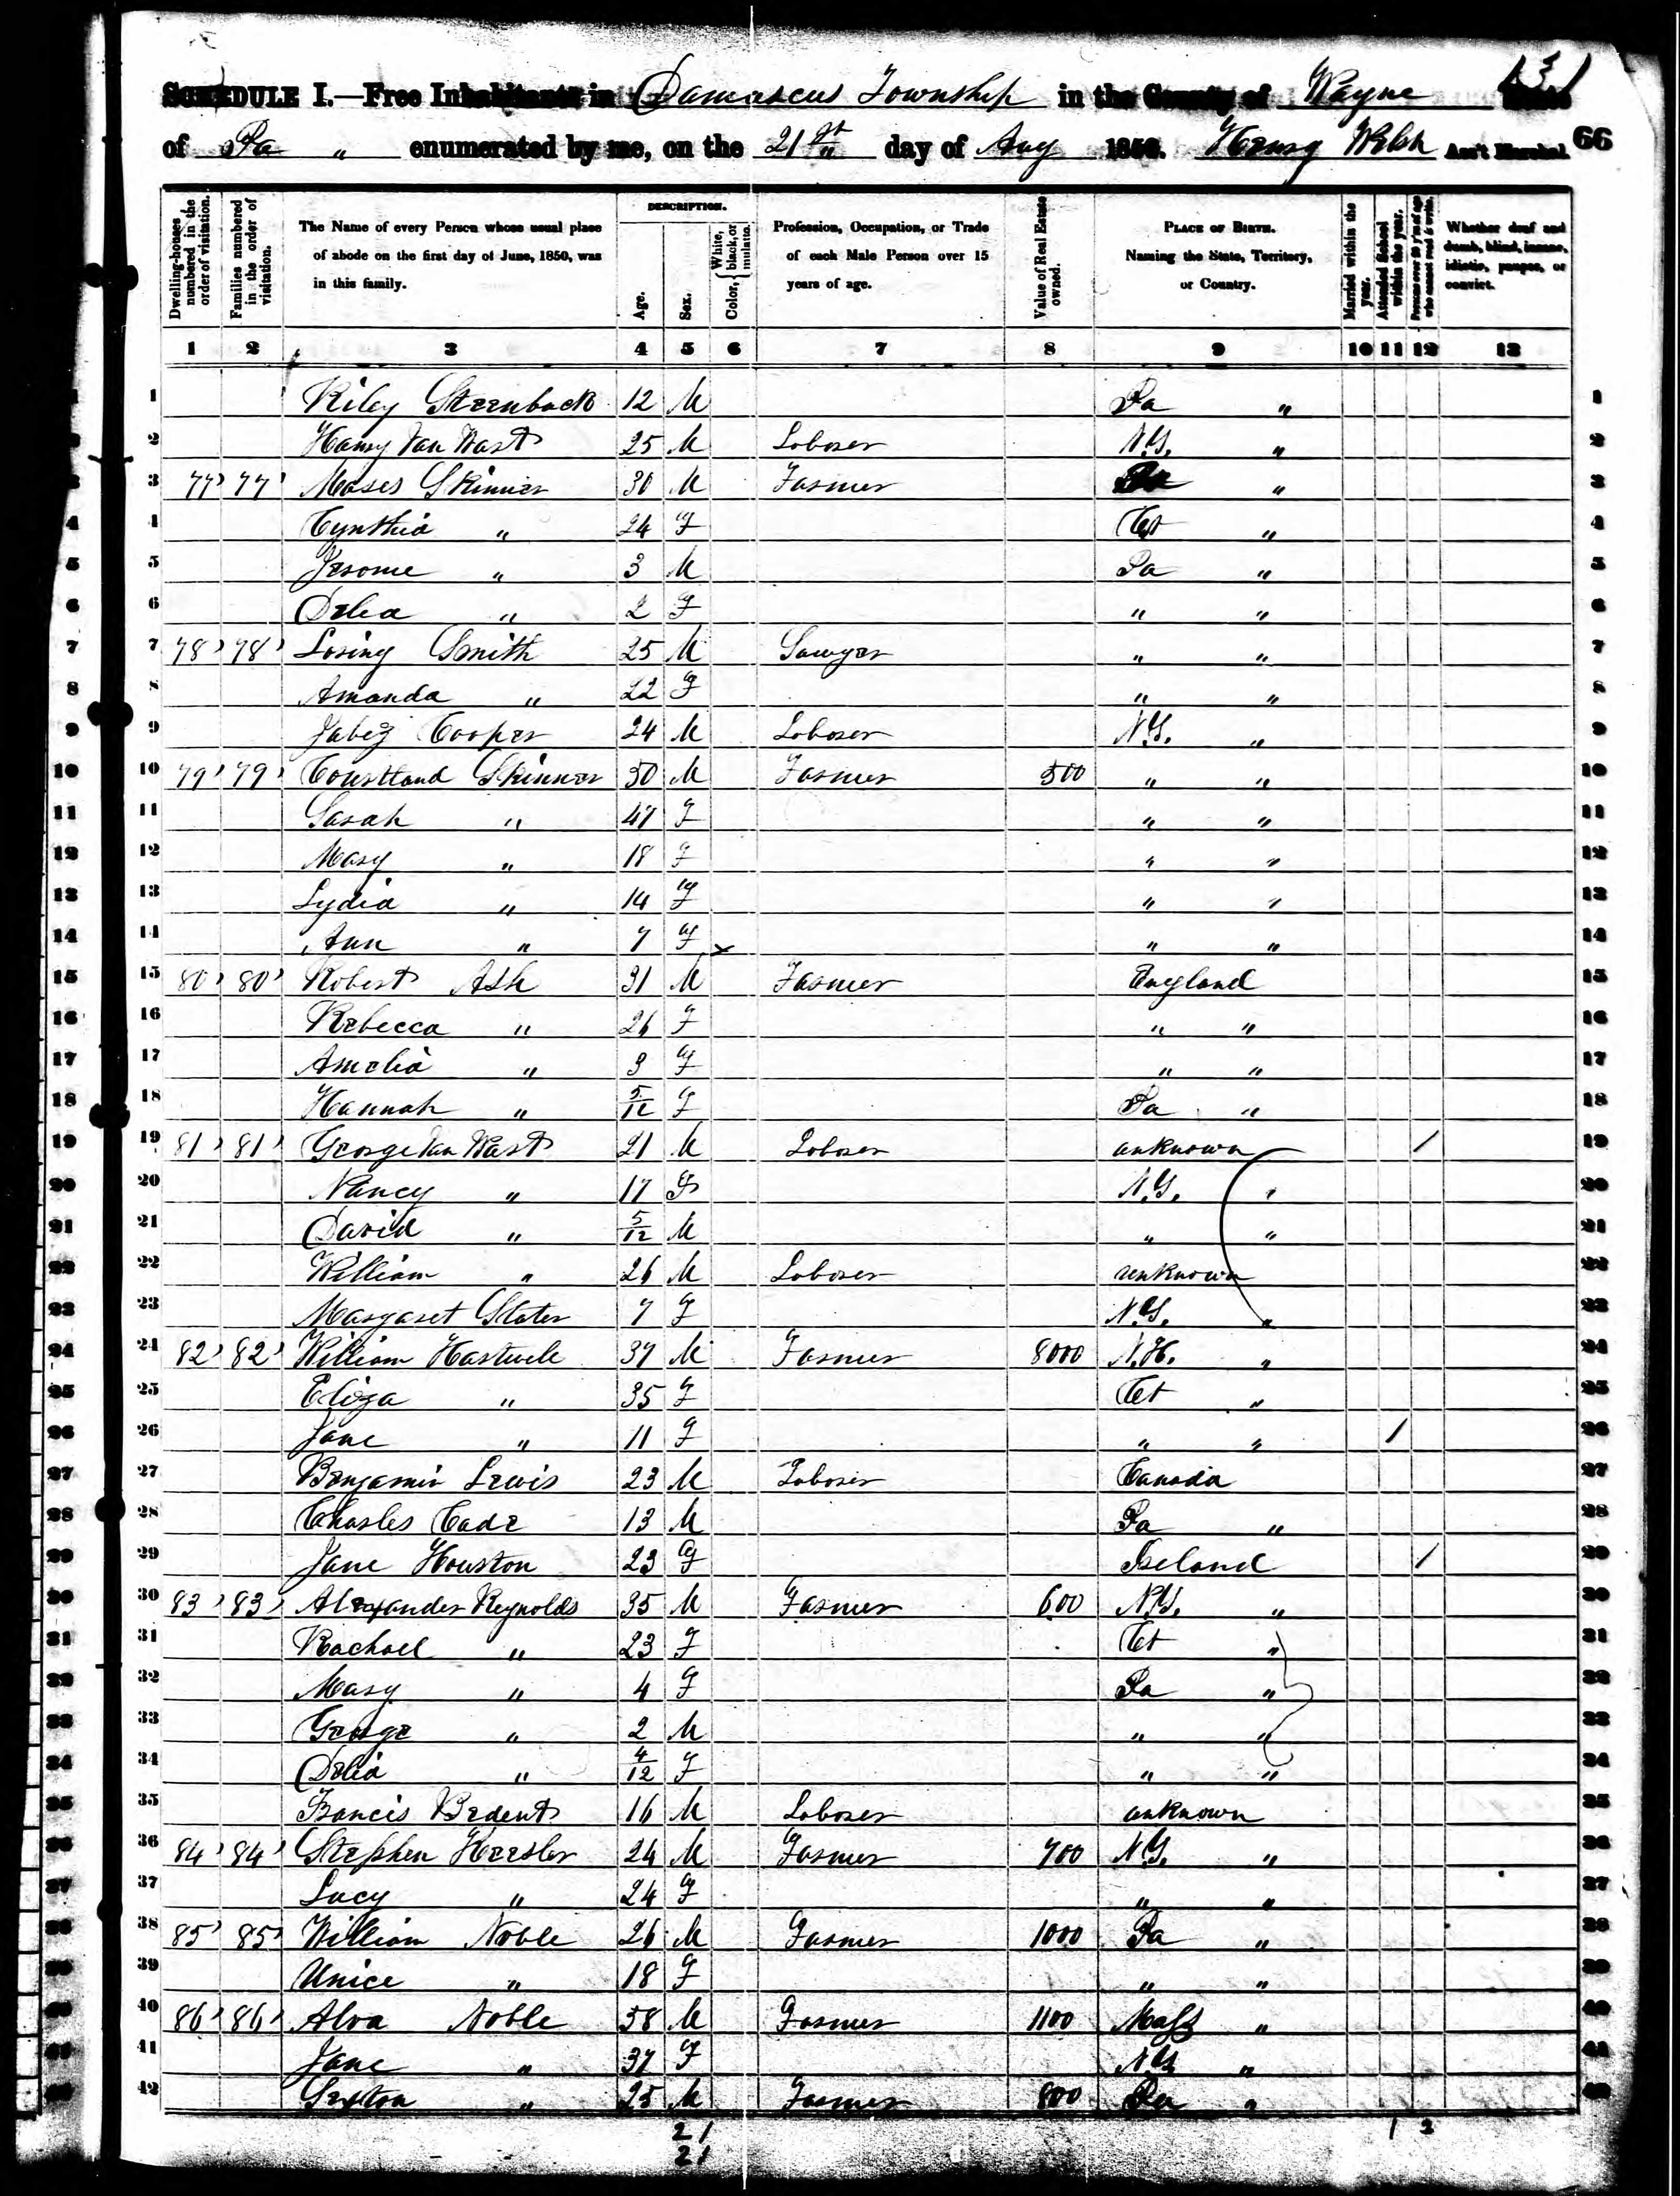 131
SCHEDULE I.—Free Inhabitants in Damascus Township in the County of Wayne State
of Pa " enumerated by me, on the 21st day of Aug 1850. Henry Welsh Ass't Marshal. 66
Dwelling-houses numbered in the order of visitation.
Families numbered in the order of visitation.
The Name of every Person whose usual place of abode on the first day of June, 1850, was in this family.
DESCRIPTION.
Age.
Sex.
Color, White, black, or mulatto.
Profession, Occupation, or Trade of each Male Person over 15 years of age.
Value of Real Estate owned.
PLACE OF BIRTH. Naming the State, Territory, or Country.
Married within the year.
Attended School within the year.
Persons over 20 y'rs of age who cannot read & write.
Whether deaf and dumb, blind, insane, idiotic, pauper, or convict.
1 2 3 4 5 6 7 8 9 10 11 12 13
1 Riley Steenback 12 M Pa " 1
2 Harvy Van Wart 25 M Laborer N.Y. " 2
3 77 77 Moses Skinner 30 M Farmer Pa " 3
4 Cynthia " 24 F Ct " 4
5 Jerome " 3 M Pa " 5
6 Delia " 2 F " " 6
7 78 78 Loring Smith 25 M Sawyer " " 7
8 Amanda " 22 F " " 8
9 Jabez Cooper 24 M Laborer N.Y. " 9
10 79 79 Courtland Skinner 50 M Farmer 500 " " 10
11 Sarah " 47 F " " 11
12 Mary " 18 F " " 12
13 Lydia " 14 F " " 13
14 Ann " 7 F " " 14
15 80 80 Robert Ash 31 M Farmer England 15
16 Rebecca " 26 F " " 16
17 Amelia " 3 F " " 17
18 Hannah " 5/12 F Pa " 18
19 81 81 George Van Wart 21 M Laborer unknown / 19
20 Nancy " 17 F N.Y. " 20
21 David " 5/12 M " " 21
22 William " 26 M Laborer unknown 22
23 Margaret Slater 7 F N.Y. " 23
24 82 82 William Hartwell 37 M Farmer 8000 N.H. " 24
25 Eliza " 35 F Ct " 25
26 Jane " 11 F " " / 26
27 Benjamin Lewis 23 M Laborer Canada 27
28 Charles Cade 13 M Pa " 28
29 Jane Houston 23 F Ireland / 29
30 83 83 Alexander Reynolds 35 M Farmer 600 N.Y. " 30
31 Rachael " 23 F Ct " 31
32 Mary " 4 F Pa " 32
33 George " 2 M " " 33
34 Delia " 4/12 F " " 34
35 Francis Bedent 16 M Laborer unknown 35
36 84 84 Stephen Keesler 24 M Farmer 700 N.Y. " 36
37 Lucy " 24 F " " 37
38 85 85 William Noble 26 M Farmer 1000 Pa " 38
39 Unice " 18 F " " 39
40 86 86 Alva Noble 58 M Farmer 1100 Mass " 40
41 Jane " 37 F N.Y. " 41
42 Sexton " 25 M Farmer 800 Pa " 42
21 1 2
21